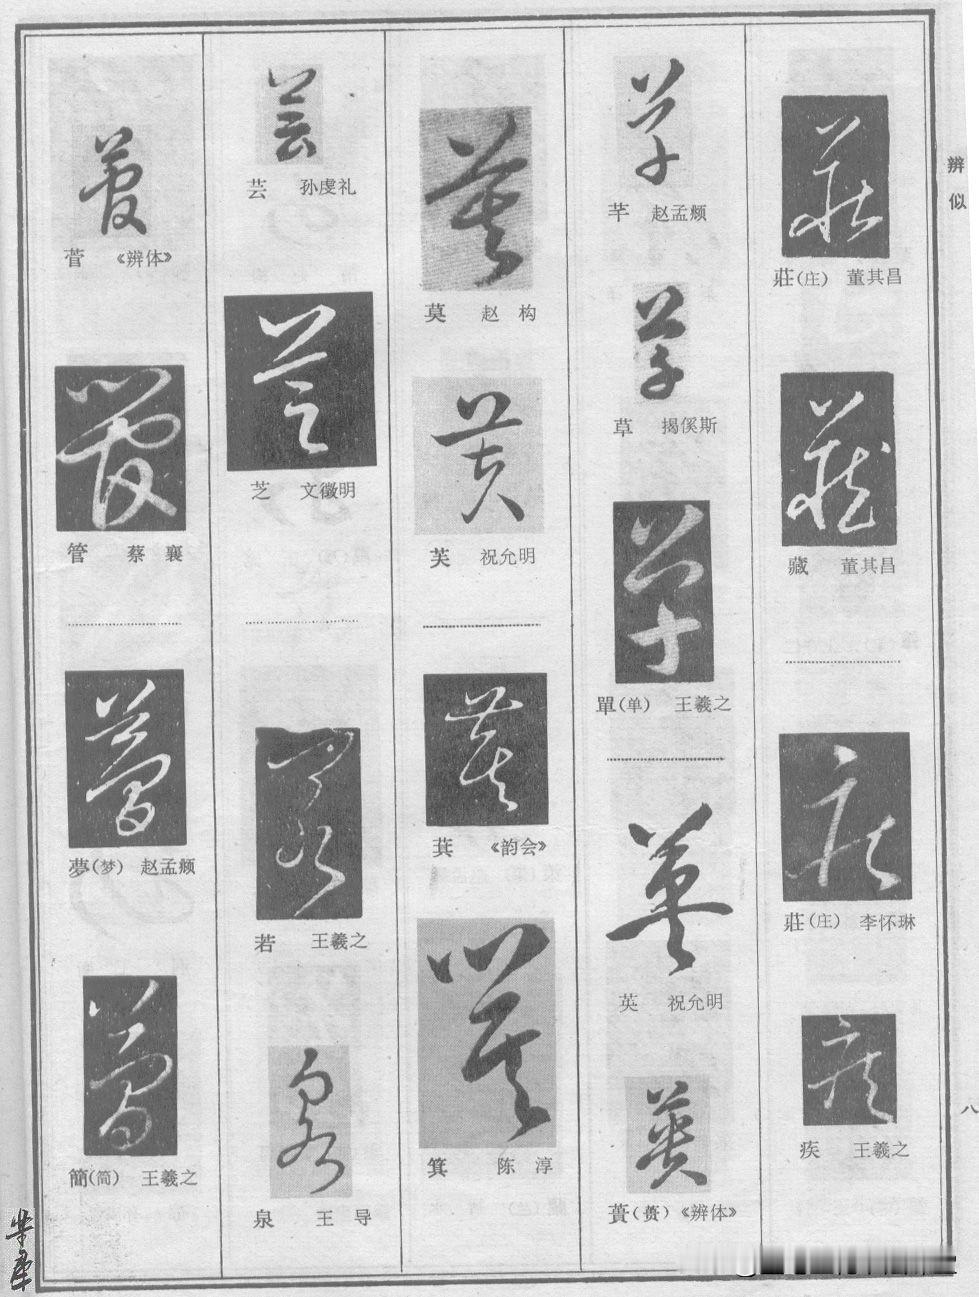 辨似
莊(庄) 董其昌
藏 董其昌
莊(庄) 李怀琳
疾 王羲之
芉 赵孟頫
草 揭傒斯
單(单) 王羲之
英 祝允明
蕡(𫎧) 《辨体》
莫 赵构
芙 祝允明
萁 《韵会》
箕 陈淳
芸 孙虔礼
芝 文徵明
若 王羲之
泉 王导
菅 《辨体》
管 蔡襄
夢(梦) 赵孟頫
簡(简) 王羲之
八